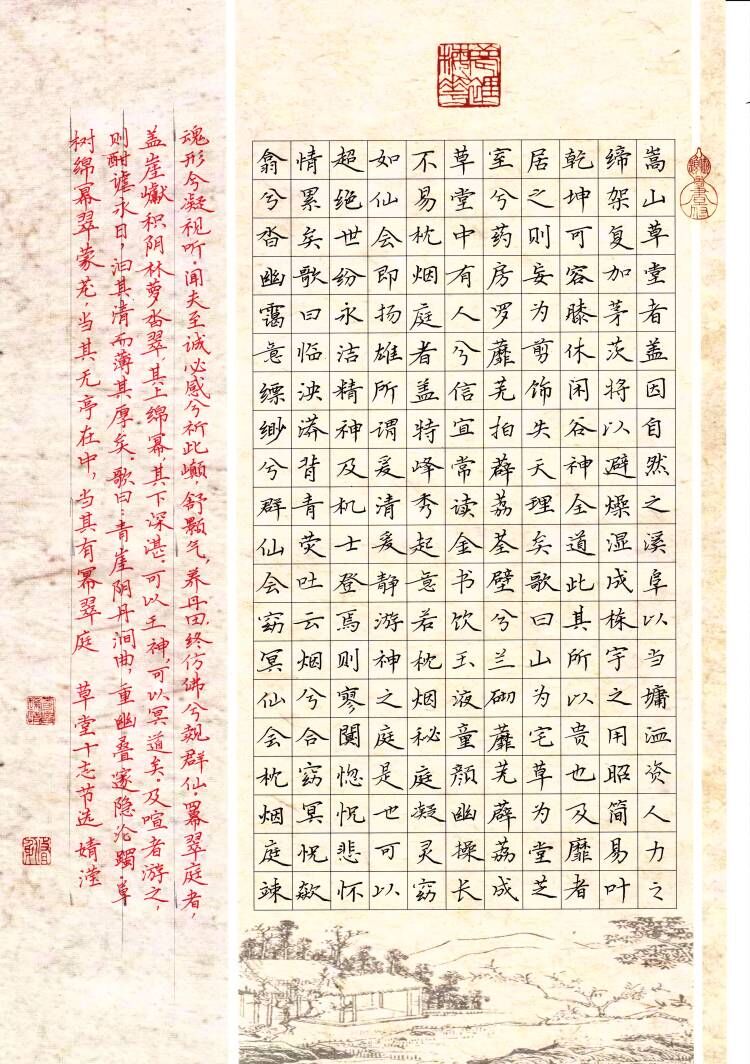 嵩山草堂者盖因自然之溪阜以当墉洫资人力之
缔架复加茅茨将以避燥湿成栋宇之用昭简易叶
乾坤可容膝休闲谷神全道此其所以贵也及靡者
居之则妄为剪饰失天理矣歌曰山为宅草为堂芝
室兮药房罗蘼芜拍薜荔荃壁兮兰砌蘼芜薜荔成
草堂中有人兮信宜常读金书饮玉液童颜幽操长
不易枕烟庭者盖特峰秀起意若枕烟秘庭凝灵窈
如仙会即扬雄所谓爰清爰静游神之庭是也可以
超绝世纷永洁精神及机士登焉则寥阒惚恍悲怀
情累矣歌曰临泱漭背青荧吐云烟兮合窈冥恍欻
翕兮沓幽霭意缥缈兮群仙会窈冥仙会枕烟庭竦
魂形兮凝视听。闻夫至诚必感兮祈此巅，舒颢气，养丹田，终仿佛兮觌群仙。幂翠庭者，
盖崖巘积阴，林萝沓翠，其上绵幂，其下深湛。可以王神，可以冥道矣。及喧者游之，
则酣谑永日，汩其清而薄其厚矣。歌曰：青崖阴丹涧曲，重幽叠邃隐沦躅。草
树绵幂翠蒙茏，当其无亭在中，当其有幂翠庭 草堂十志节选 婧滢